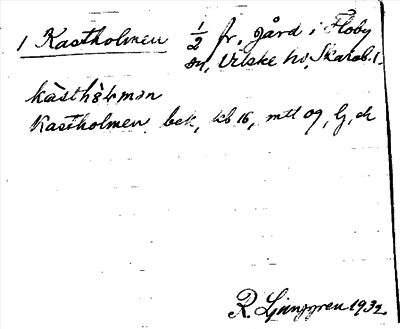 1 Kastholmen 1/2 fr. gård i Floby
sn, Vilske hd, Skarab. l.
kàsthɔ̀4mən
Kastholmen bek, kb 16, mtt 09, lj, ek
R. Ljunggren 1932